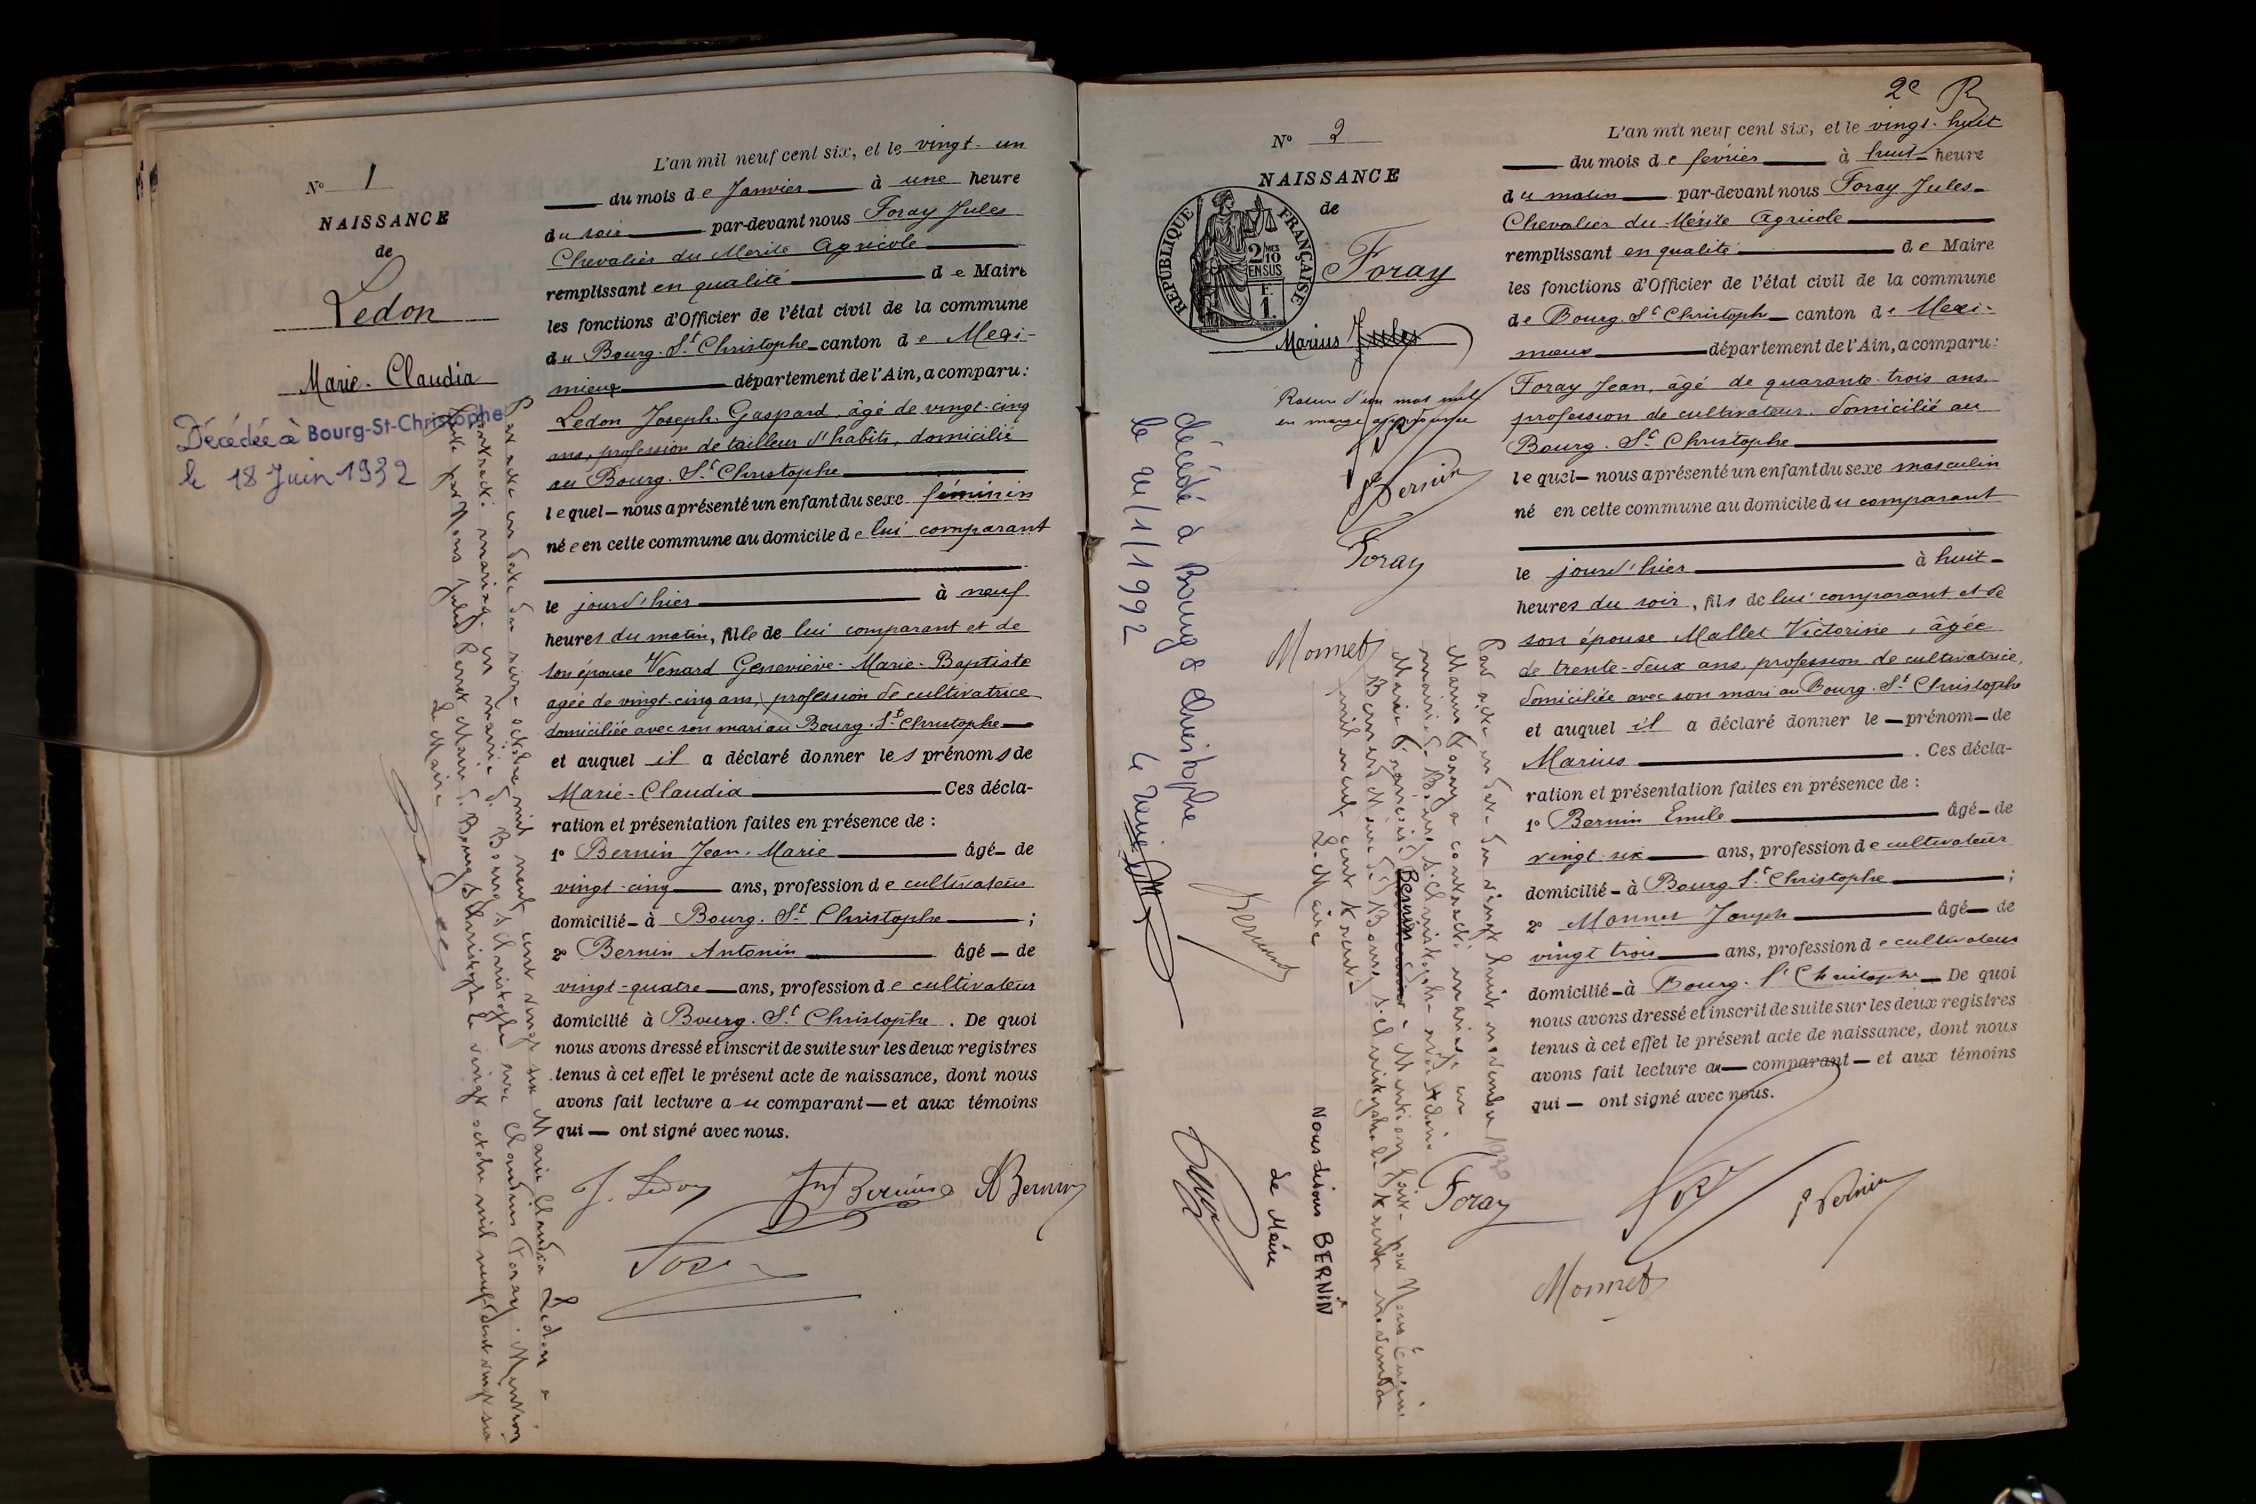 Nº 1
NAISSANCE
de
Ledon
Marie-Claudia
Décédée à Bourg-St-Christophe
le 18 Juin 1932
L'an mil neuf cent six, et le vingt-un
du mois de Janvier à une heure
du soir par-devant nous Foray Jules
Chevalier du Mérite Agricole
remplissant en qualité de Maire
les fonctions d'Officier de l'état civil de la commune
du Bourg-St-Christophe canton de Mexi-
mieux département de l'Ain, a comparu :
Ledon Joseph-Gaspard, âgé de vingt-cinq
ans, profession de tailleur d'habits, domicilié
au Bourg-St-Christophe
lequel nous a présenté un enfant du sexe féminin
née en cette commune au domicile de lui comparant
le jourd'hier à neuf
heures du matin, fille de lui comparant et de
son épouse Venard Geneviève-Marie-Baptiste
agée de vingt-cinq ans, profession de cultivatrice
domiciliée avec son mari au Bourg-St-Christophe
et auquel il a déclaré donner les prénoms de
Marie-Claudia Ces décla-
ration et présentation faites en présence de :
1º Bernin Jean-Marie âgé de
vingt-cinq ans, profession de cultivateur
domicilié à Bourg-St-Christophe ;
2º Bernin Antonin âgé de
vingt-quatre ans, profession de cultivateur
domicilié à Bourg-St-Christophe. De quoi
nous avons dressé et inscrit de suite sur les deux registres
tenus à cet effet le présent acte de naissance, dont nous
avons fait lecture au comparant et aux témoins
qui ont signé avec nous.
J. Ledon Bernin A Bernin
Par acte en date du seize octobre mil neuf cent vingt six Marie Claudia Ledon a
contracté mariage en mairie de Bourg St Christophe avec Claudius Foray. Mention
faite par Nous Jules Perret Maire de Bourg St Christophe le vingt octobre mil neuf cent vingt six
Le Maire
2e R
Nº 2
NAISSANCE
de
REPUBLIQUE FRANÇAISE
2/10 EN SUS
F.
1.
Foray
Marius Jules
Rature d'un mot nul
en marge approuvée
Bernin
Foray
Monnet
L'an mil neuf cent six, et le vingt-huit
du mois de février à huit heure
du matin par-devant nous Foray Jules
Chevalier du Mérite Agricole
remplissant en qualité de Maire
les fonctions d'Officier de l'état civil de la commune
de Bourg-St-Christophe canton de Mexi-
mieux département de l'Ain, a comparu :
Foray Jean, âgé de quarante-trois ans,
profession de cultivateur, domicilié au
Bourg-St-Christophe
lequel nous a présenté un enfant du sexe masculin
né en cette commune au domicile du comparant
le jourd'hier à huit
heures du soir, fils de lui comparant et de
son épouse Mallet Victorine, âgée
de trente-deux ans, profession de cultivatrice,
domiciliée avec son mari au Bourg-St-Christophe
et auquel il a déclaré donner le prénom de
Marius. Ces décla-
ration et présentation faites en présence de :
1º Bernin Emile âgé de
vingt-six ans, profession de cultivateur
domicilié à Bourg-St-Christophe ;
2º Monnet Joseph âgé de
vingt trois ans, profession de cultivateur
domicilié à Bourg-St-Christophe De quoi
nous avons dressé et inscrit de suite sur les deux registres
tenus à cet effet le présent acte de naissance, dont nous
avons fait lecture au comparant et aux témoins
qui ont signé avec nous.
Foray Bernin
Monnet
Par acte en date du vingt huit novembre 1930
Marius Foray a contracté mariage en
mairie de Bourg St Christophe avec
Marie Bernin. Mention faite par Nous
Bernard Maire de Bourg St Christophe le trente novembre
mil neuf cent trente
Le Maire
Bernard
Nous disons BERNIN
Le Maire
décédé à Bourg St Christophe
le 21/1/1992 Le Maire